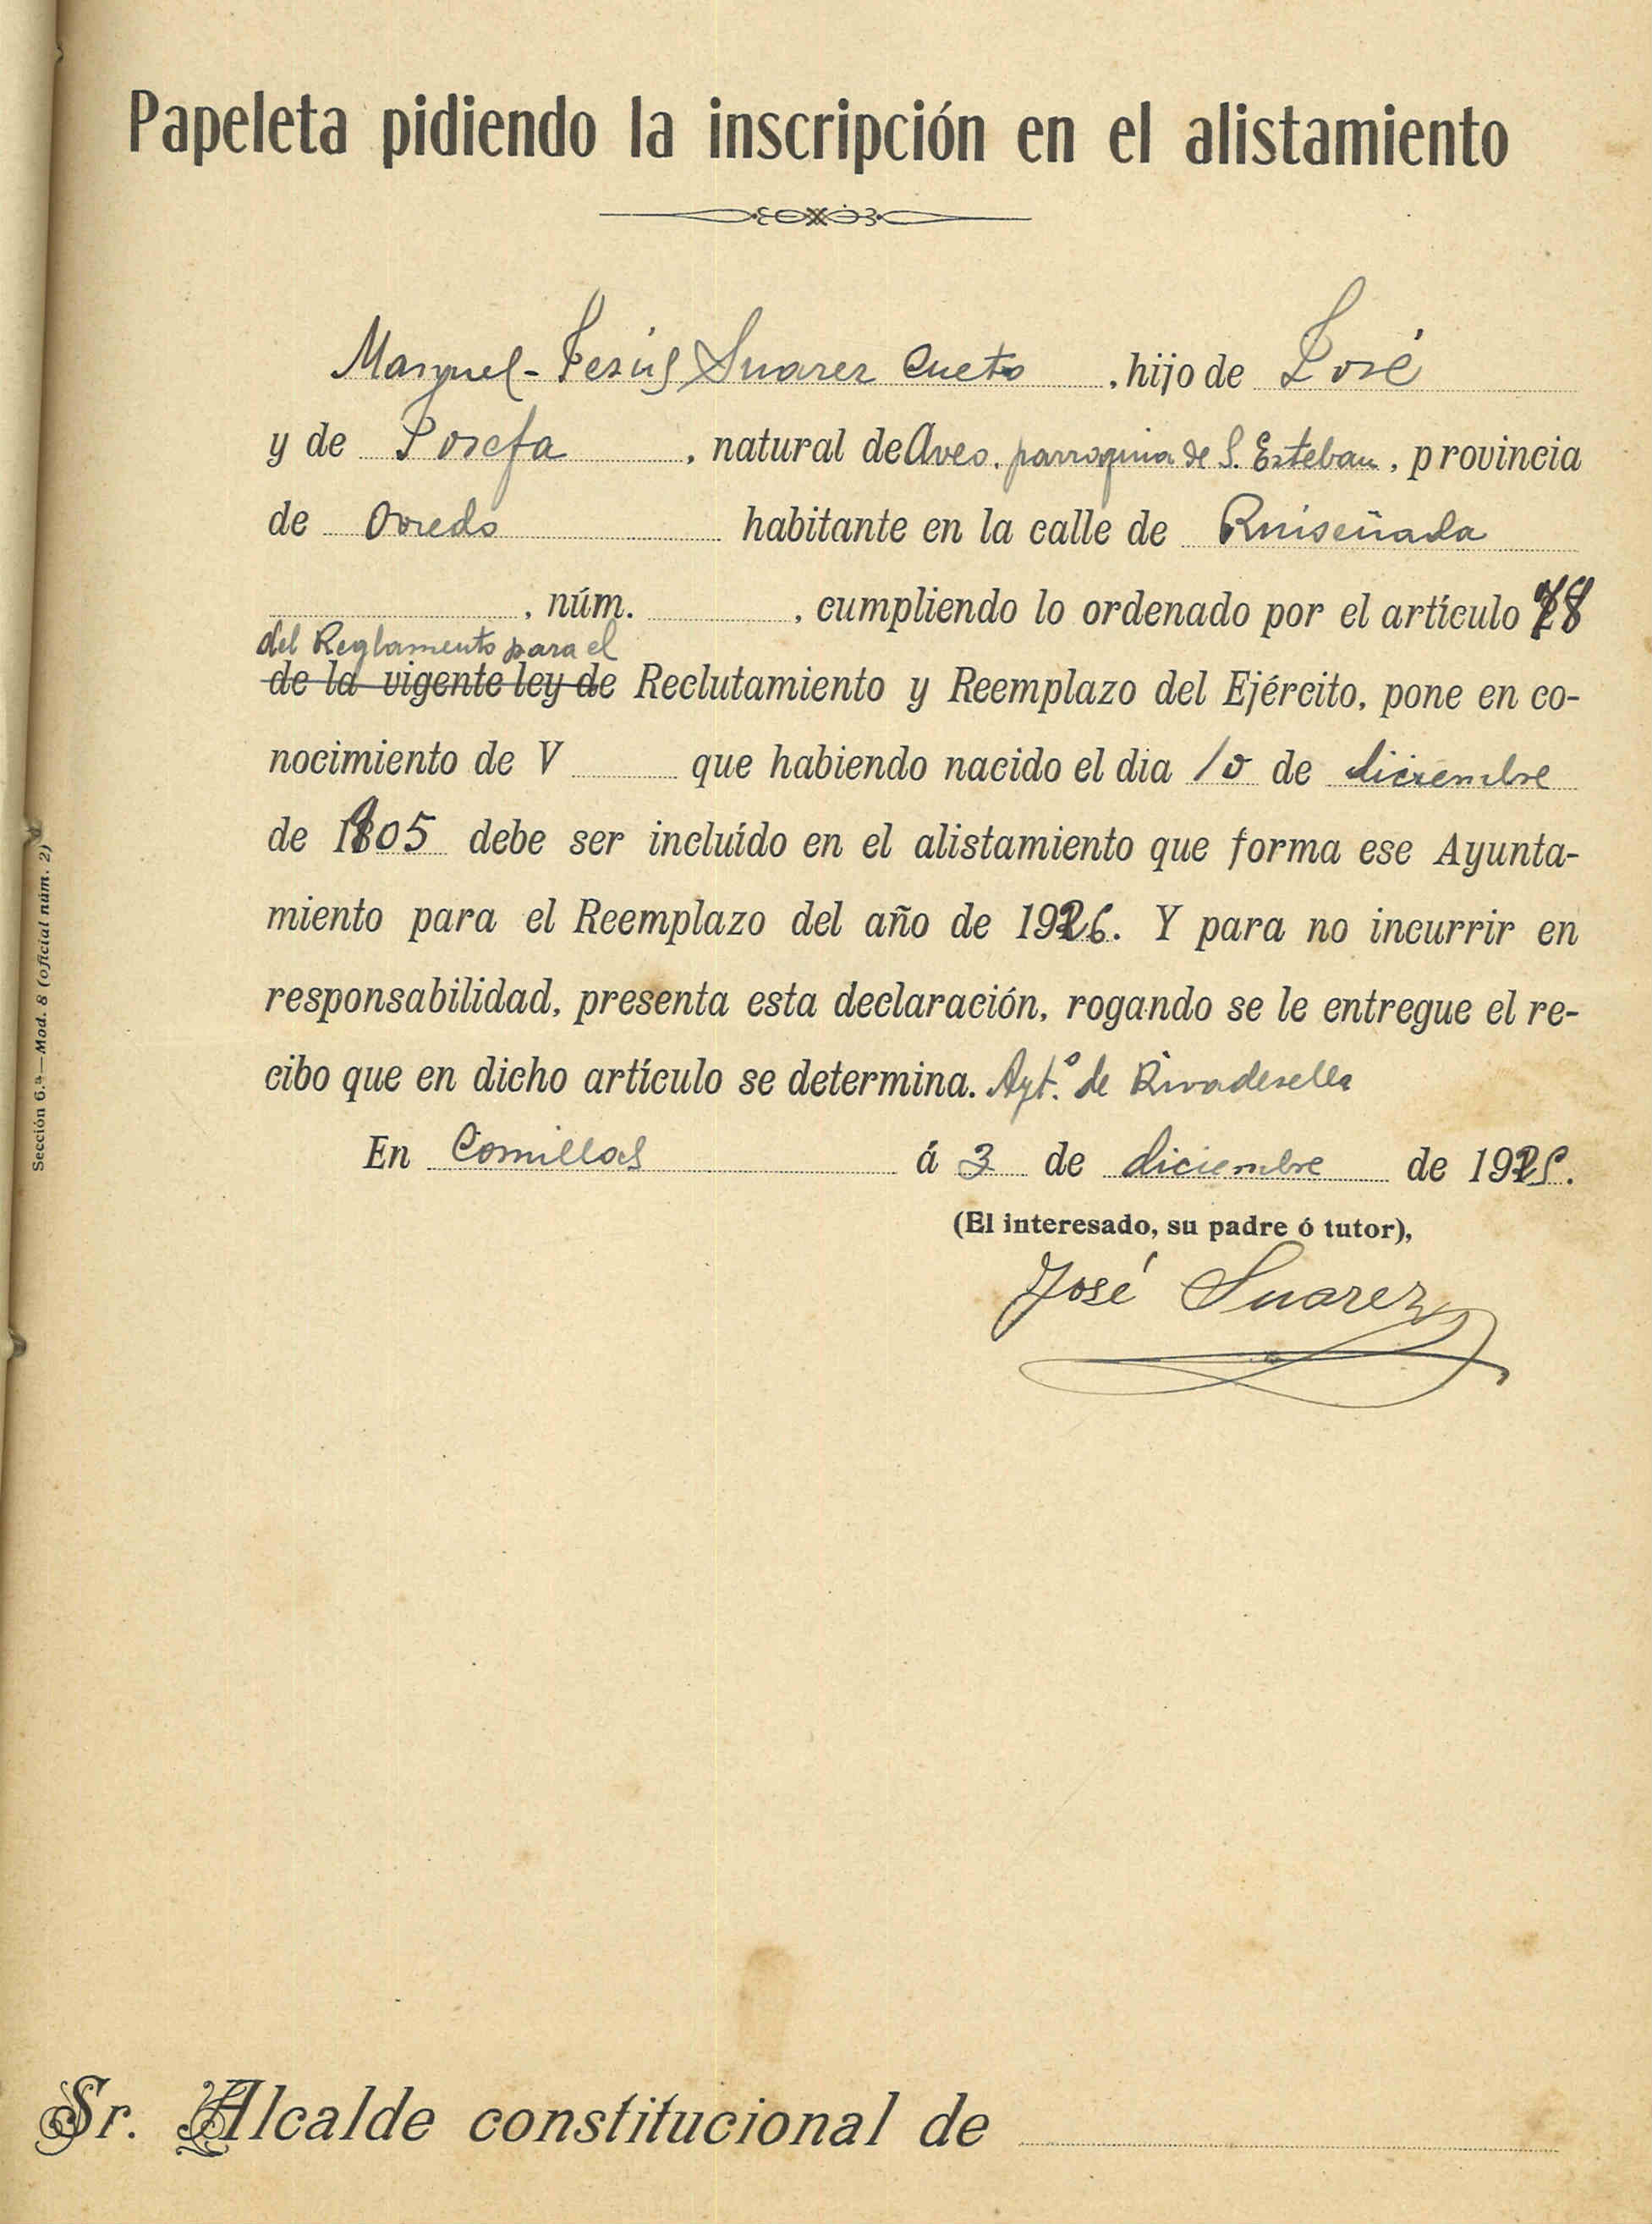 Papeleta pidiendo la inscripción en el alistamiento
Manuel-Jesús Suarez Cueto, hijo de José
y de Josefa, natural de Aves, parroquia de S. Esteban, provincia
de Oviedo habitante en la calle de Ruiseñada
, núm. , cumpliendo lo ordenado por el artículo 78
del Reglamento para el
de la vigente ley de Reclutamiento y Reemplazo del Ejército, pone en co-
nocimiento de V que habiendo nacido el dia 10 de diciembre
de 1905 debe ser incluído en el alistamiento que forma ese Ayunta-
miento para el Reemplazo del año de 1926. Y para no incurrir en
responsabilidad, presenta esta declaración, rogando se le entregue el re-
cibo que en dicho artículo se determina. Ayt.º de Rivadesella
En Comillas á 3 de diciembre de 1925.
(El interesado, su padre ó tutor),
José Suarez
Sr. Alcalde constitucional de
Sección 6.ª—Mod. 8 (oficial núm. 2)